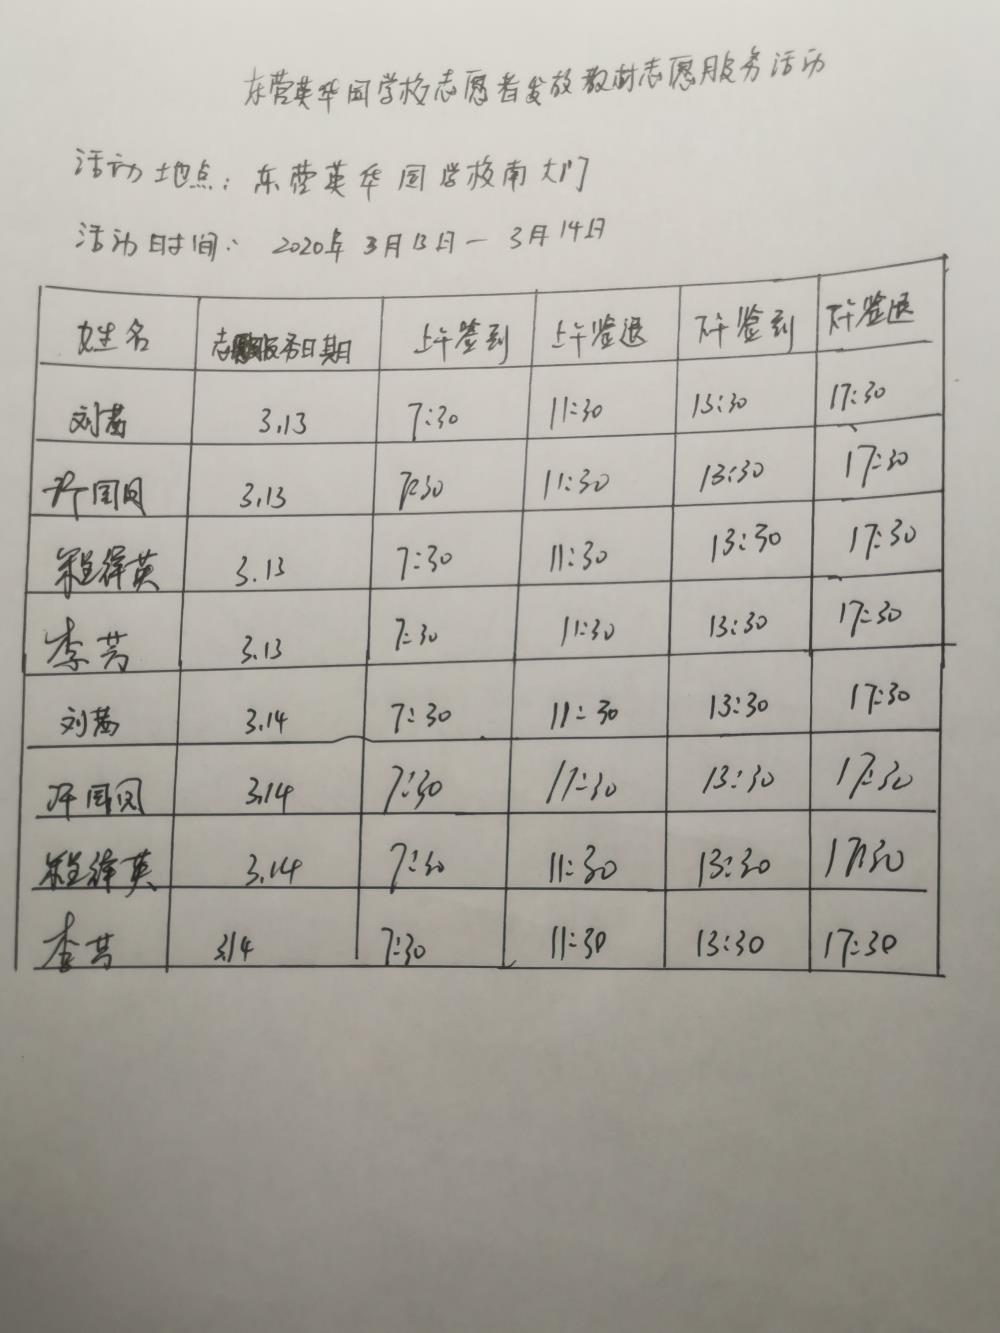 东营英华园学校志愿者发放教材志愿服务活动
活动地点：东营英华园学校南大门
活动时间：2020年3月13日－3月14日
姓名 志愿服务日期 上午签到 上午签退 下午签到 下午签退
刘茜 3.13 7:30 11:30 13:30 17:30
许国凤 3.13 7:30 11:30 13:30 17:30
程祥英 3.13 7:30 11:30 13:30 17:30
李芳 3.13 7:30 11:30 13:30 17:30
刘茜 3.14 7:30 11:30 13:30 17:30
许国凤 3.14 7:30 11:30 13:30 17:30
程祥英 3.14 7:30 11:30 13:30 17:30
李芳 3.14 7:30 11:30 13:30 17:30